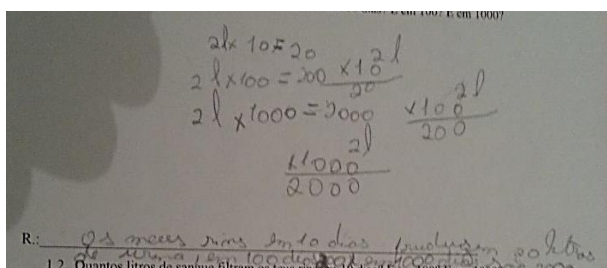 E em 100? E em 1000?
2l x 10 = 20
2l x 100 = 200
2l x 1000 = 2000
2l
x10
20
2l
x100
200
2l
x1000
2000
R.: Os meus rins em 10 dias produzem 20 litros
de urina, em 100 dias em 1000 dias
1.2 Quantos litros de sangue filtram